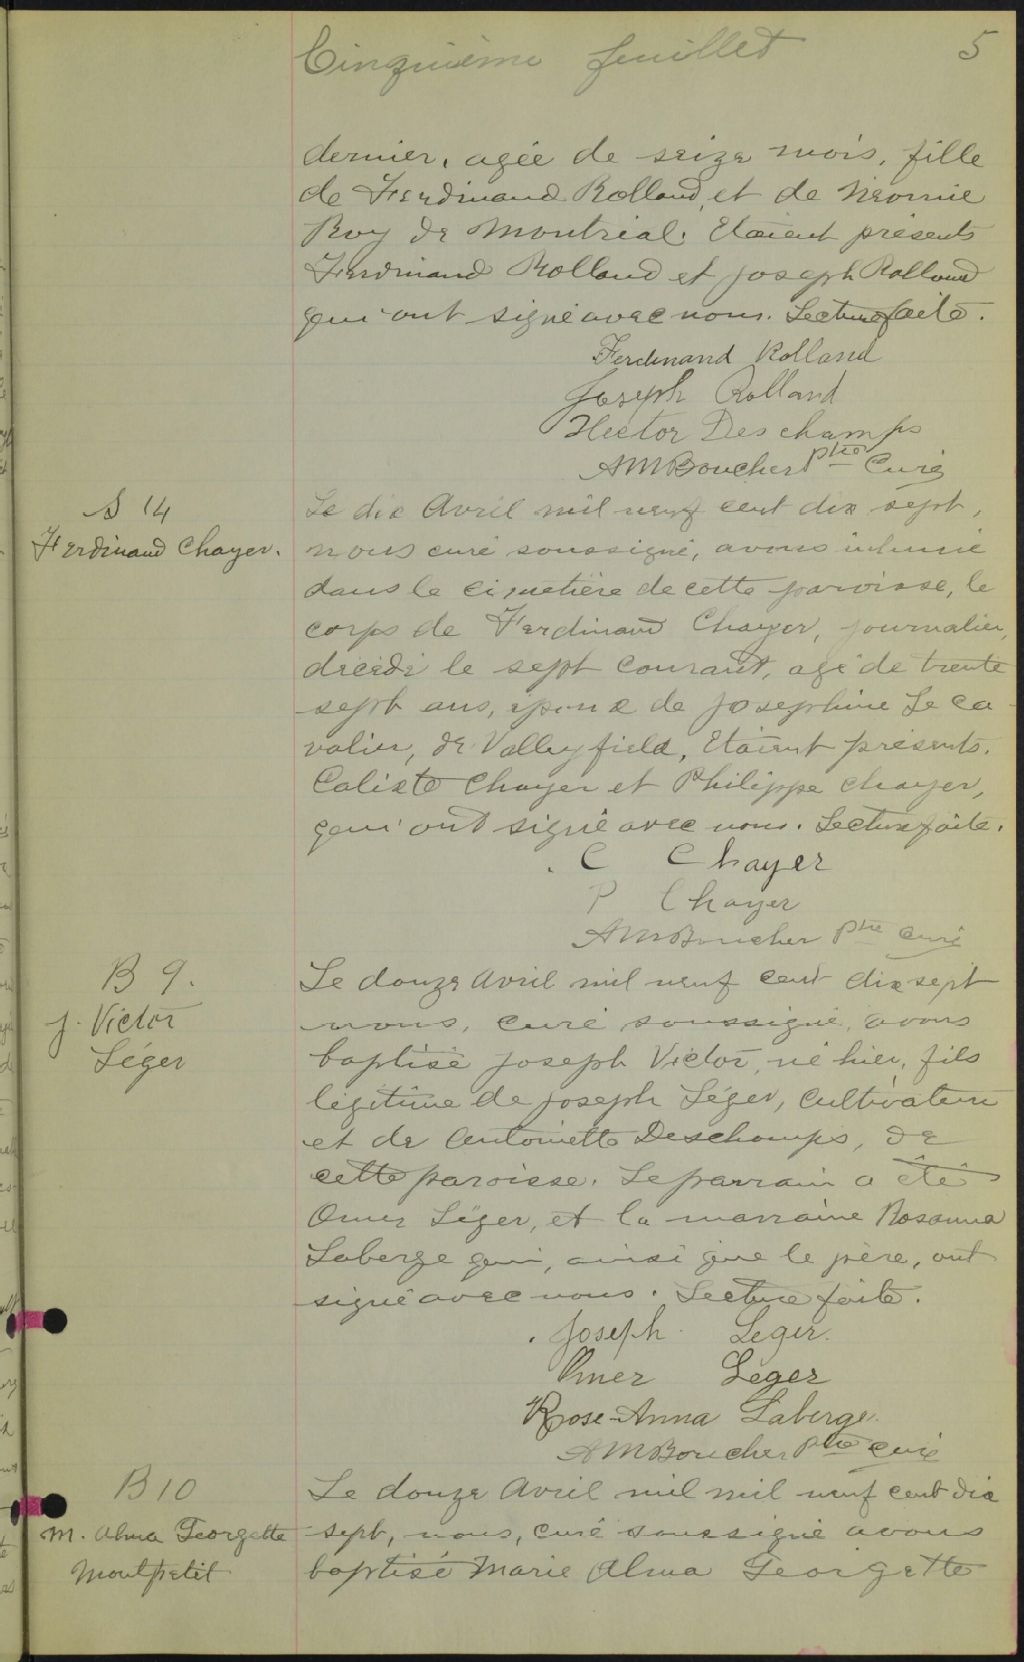 Cinquième feuillet 5
dernier, agée de seize mois, fille
de Ferdinand Rolland, et de Néomie
Roy de Montréal. Etaient présents
Ferdinand Rolland et Joseph Rolland
qui ont signé avec nous. Lecture faite.
Ferdinand Rolland
Joseph Rolland
Hector Deschamps
AMBoucher Ptre Curé
S 14
Ferdinand Chayer.
Le dix Avril mil neuf cent dix sept,
nous curé soussigné, avons inhumé
dans le cimetière de cette paroisse, le
corps de Ferdinand Chayer, journalier,
décédé le sept courant, agé de trente
sept ans, époux de Josephine Le Ca-
valier, de Valleyfield, Etaient présents.
Calixte Chayer et Philippe Chayer,
qui ont signé avec nous. Lecture faite.
C Chayer
P Chayer
AMBoucher Ptre Curé
B 9.
J. Victor
Léger
Le douze Avril mil neuf cent dix sept
nous, curé soussigné, avons
baptisé Joseph Victor, né hier, fils
légitime de Joseph Léger, Cultivateur
et de Antoinette Deschamps, de
cette paroisse. Le parrain a été
Omer Léger, et la marraine Rosanna
Laberge qui, ainsi que le père, ont
signé avec nous. Lecture faite.
Joseph Leger.
Omer Léger
Rose-Anna Laberge.
AMBoucher Ptre Curé
B 10
M. Alma Georgette
Montpetit
Le douze Avril mil mil neuf cent dix
sept, nous, curé soussigné avons
baptisé Marie Alma Georgette